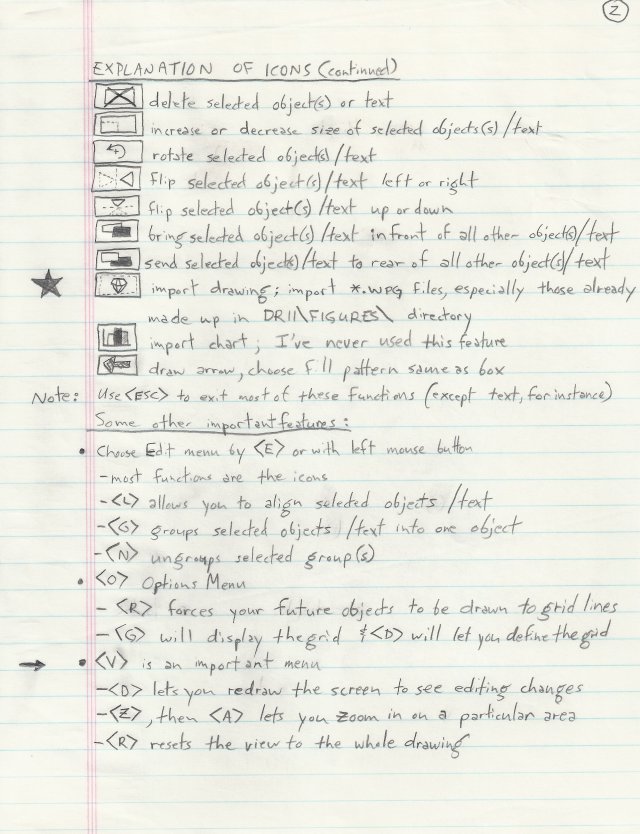 2
EXPLANATION OF ICONS (continued)
delete selected object(s) or text
increase or decrease size of selected objects(s)/text
rotate selected object(s)/text
flip selected object(s)/text left or right
flip selected object(s)/text up or down
bring selected object(s)/text in front of all other object(s)/text
send selected object(s)/text to rear of all other object(s)/text
import drawing; import *.WPG files, especially those already
made up in DR11\FIGURES\ directory
import chart; I've never used this feature
draw arrow, choose fill pattern same as box
Note: Use <ESC> to exit most of these functions (except text, for instance)
Some other important features:
• Choose Edit menu by <E> or with left mouse button
- most functions are the icons
- <L> allows you to align selected objects/text
- <G> groups selected objects/text into one object
- <N> ungroups selected group(s)
• <O> Options Menu
- <R> forces your future objects to be drawn to grid lines
- <G> will display the grid & <D> will let you define the grid
→ • <V> is an important menu
- <D> lets you redraw the screen to see editing changes
- <Z>, then <A> lets you zoom in on a particular area
- <R> resets the view to the whole drawing